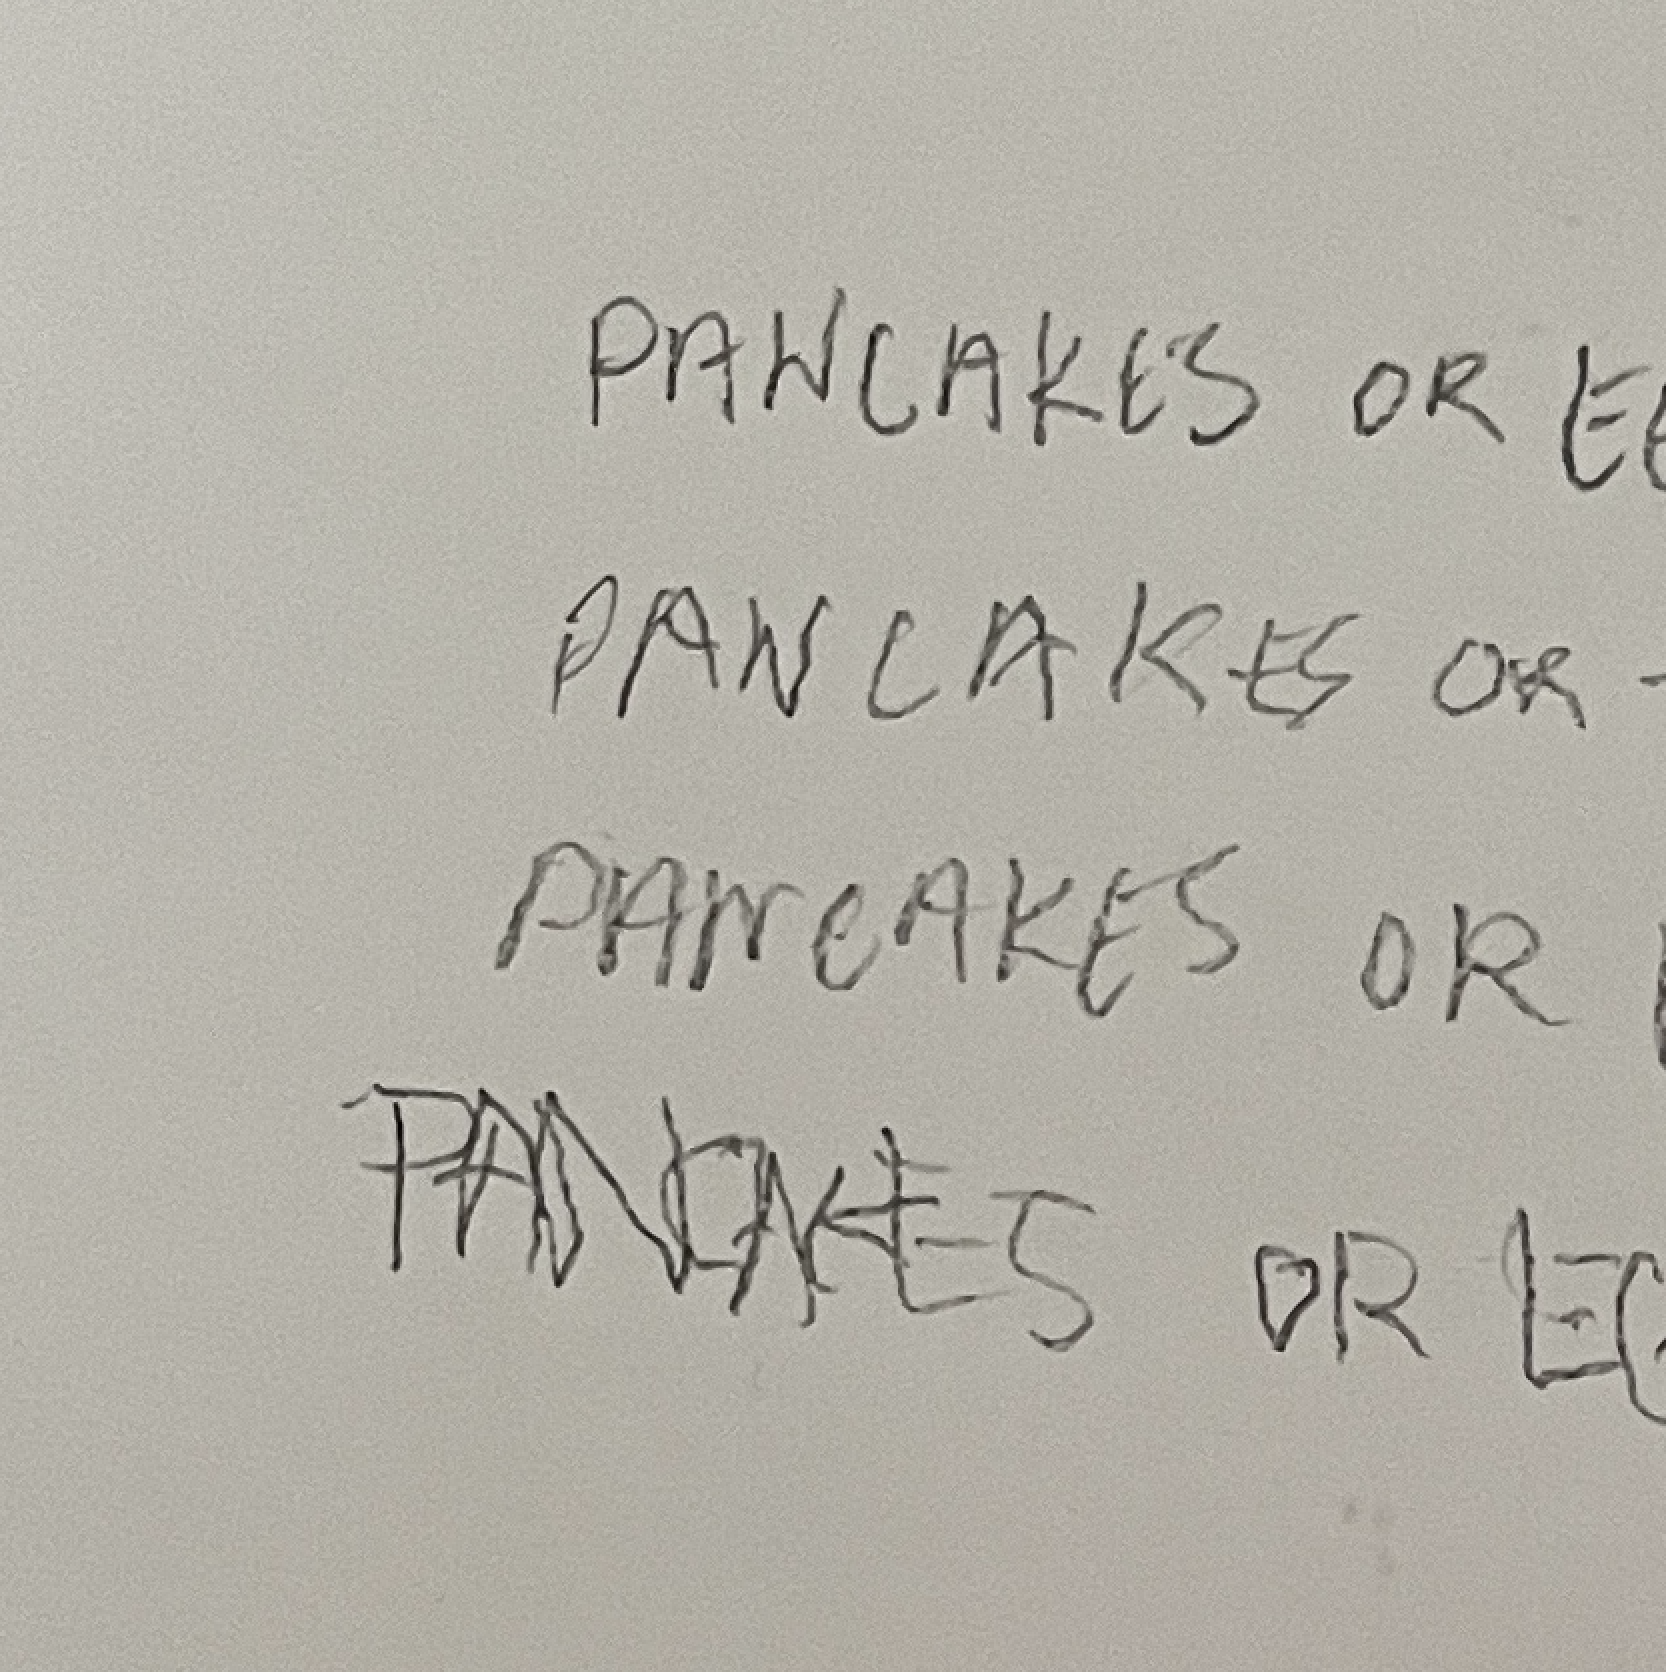 PANCAKES OR
PANCAKES OR
PANCAKES OR
PANCAKES OR